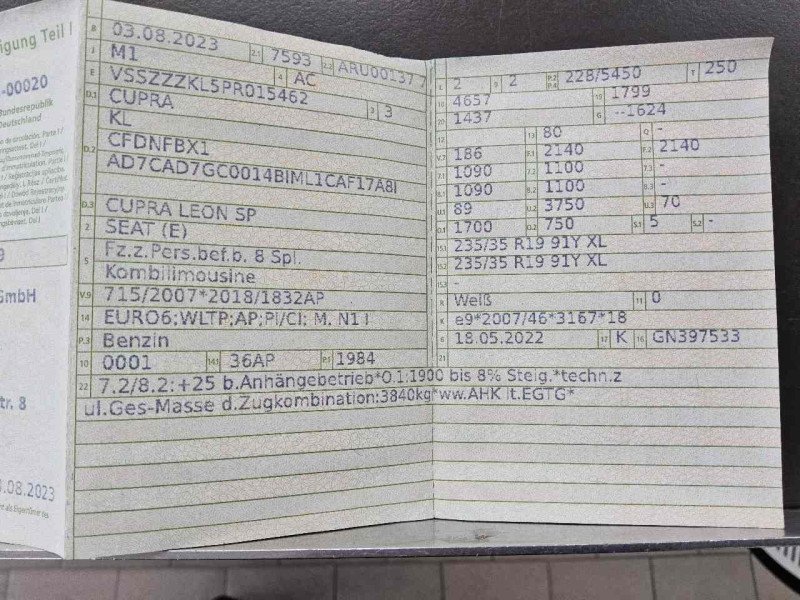 igung Teil I
-00020
Bundesrepublik
Deutschland
GmbH
tr. 8
.08.2023
B 03.08.2023 2.1 7593 2.2 ARU00137
J M1 4 AC
E VSSZZZKL5PR015462 3 3
D.1 CUPRA
D.2 KL
CFDNFBX1
AD7CAD7GC0014BIML1CAF17A8I
D.3 CUPRA LEON SP
2 SEAT (E)
5 Fz.z.Pers.bef.b. 8 Spl.
Kombilimousine
V.9 715/2007*2018/1832AP
14 EURO6;WLTP;AP;PI/CI; M, N1 I
P.3 Benzin
10 0001 14.1 36AP P.1 1984
L 2 9 2 P.2 P.4 228/5450 T 250
18 4657 19 1799
20 1437 G --1624
12 13 80 Q -
V.7 186 F.1 2140 F.2 2140
7.1 1090 7.2 1100 7.3 -
8.1 1090 8.2 1100 8.3 -
U.1 89 U.2 3750 U.3 70
O.1 1700 O.2 750 S.1 5 S.2 -
15.1 235/35 R19 91Y XL
15.2 235/35 R19 91Y XL
15.3 -
R Weiß 11 0
K e9*2007/46*3167*18
6 18.05.2022 17 K 16 GN397533
21
22 7.2/8.2:+25 b.Anhängebetrieb*O.1:1900 bis 8% Steig.*techn.z
ul.Ges-Masse d.Zugkombination:3840kg*ww.AHK lt.EGTG*